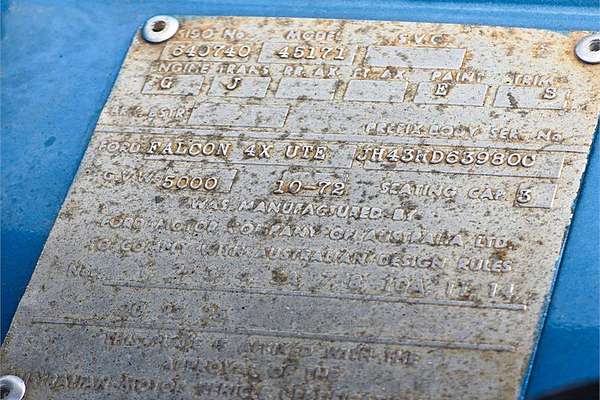 ISO No. MODEL S.V.C.
640740 45171
ENGINE TRANS. RR. AX. FT. AX. PAINT TRIM
G J E S
PREFIX BODY SER. NO.
FORD FALCON 4X UTE JH43RD639800
G.V.W. 5000 10-72 SEATING CAP. 3
WAS MANUFACTURED BY
FORD MOTOR COMPANY OF AUSTRALIA LTD.
TO COMPLY WITH AUSTRALIAN DESIGN RULES
No.
THIS PLATE IS AFFIXED WITH THE
APPROVAL OF THE
AUSTRALIAN MOTOR VEHICLE